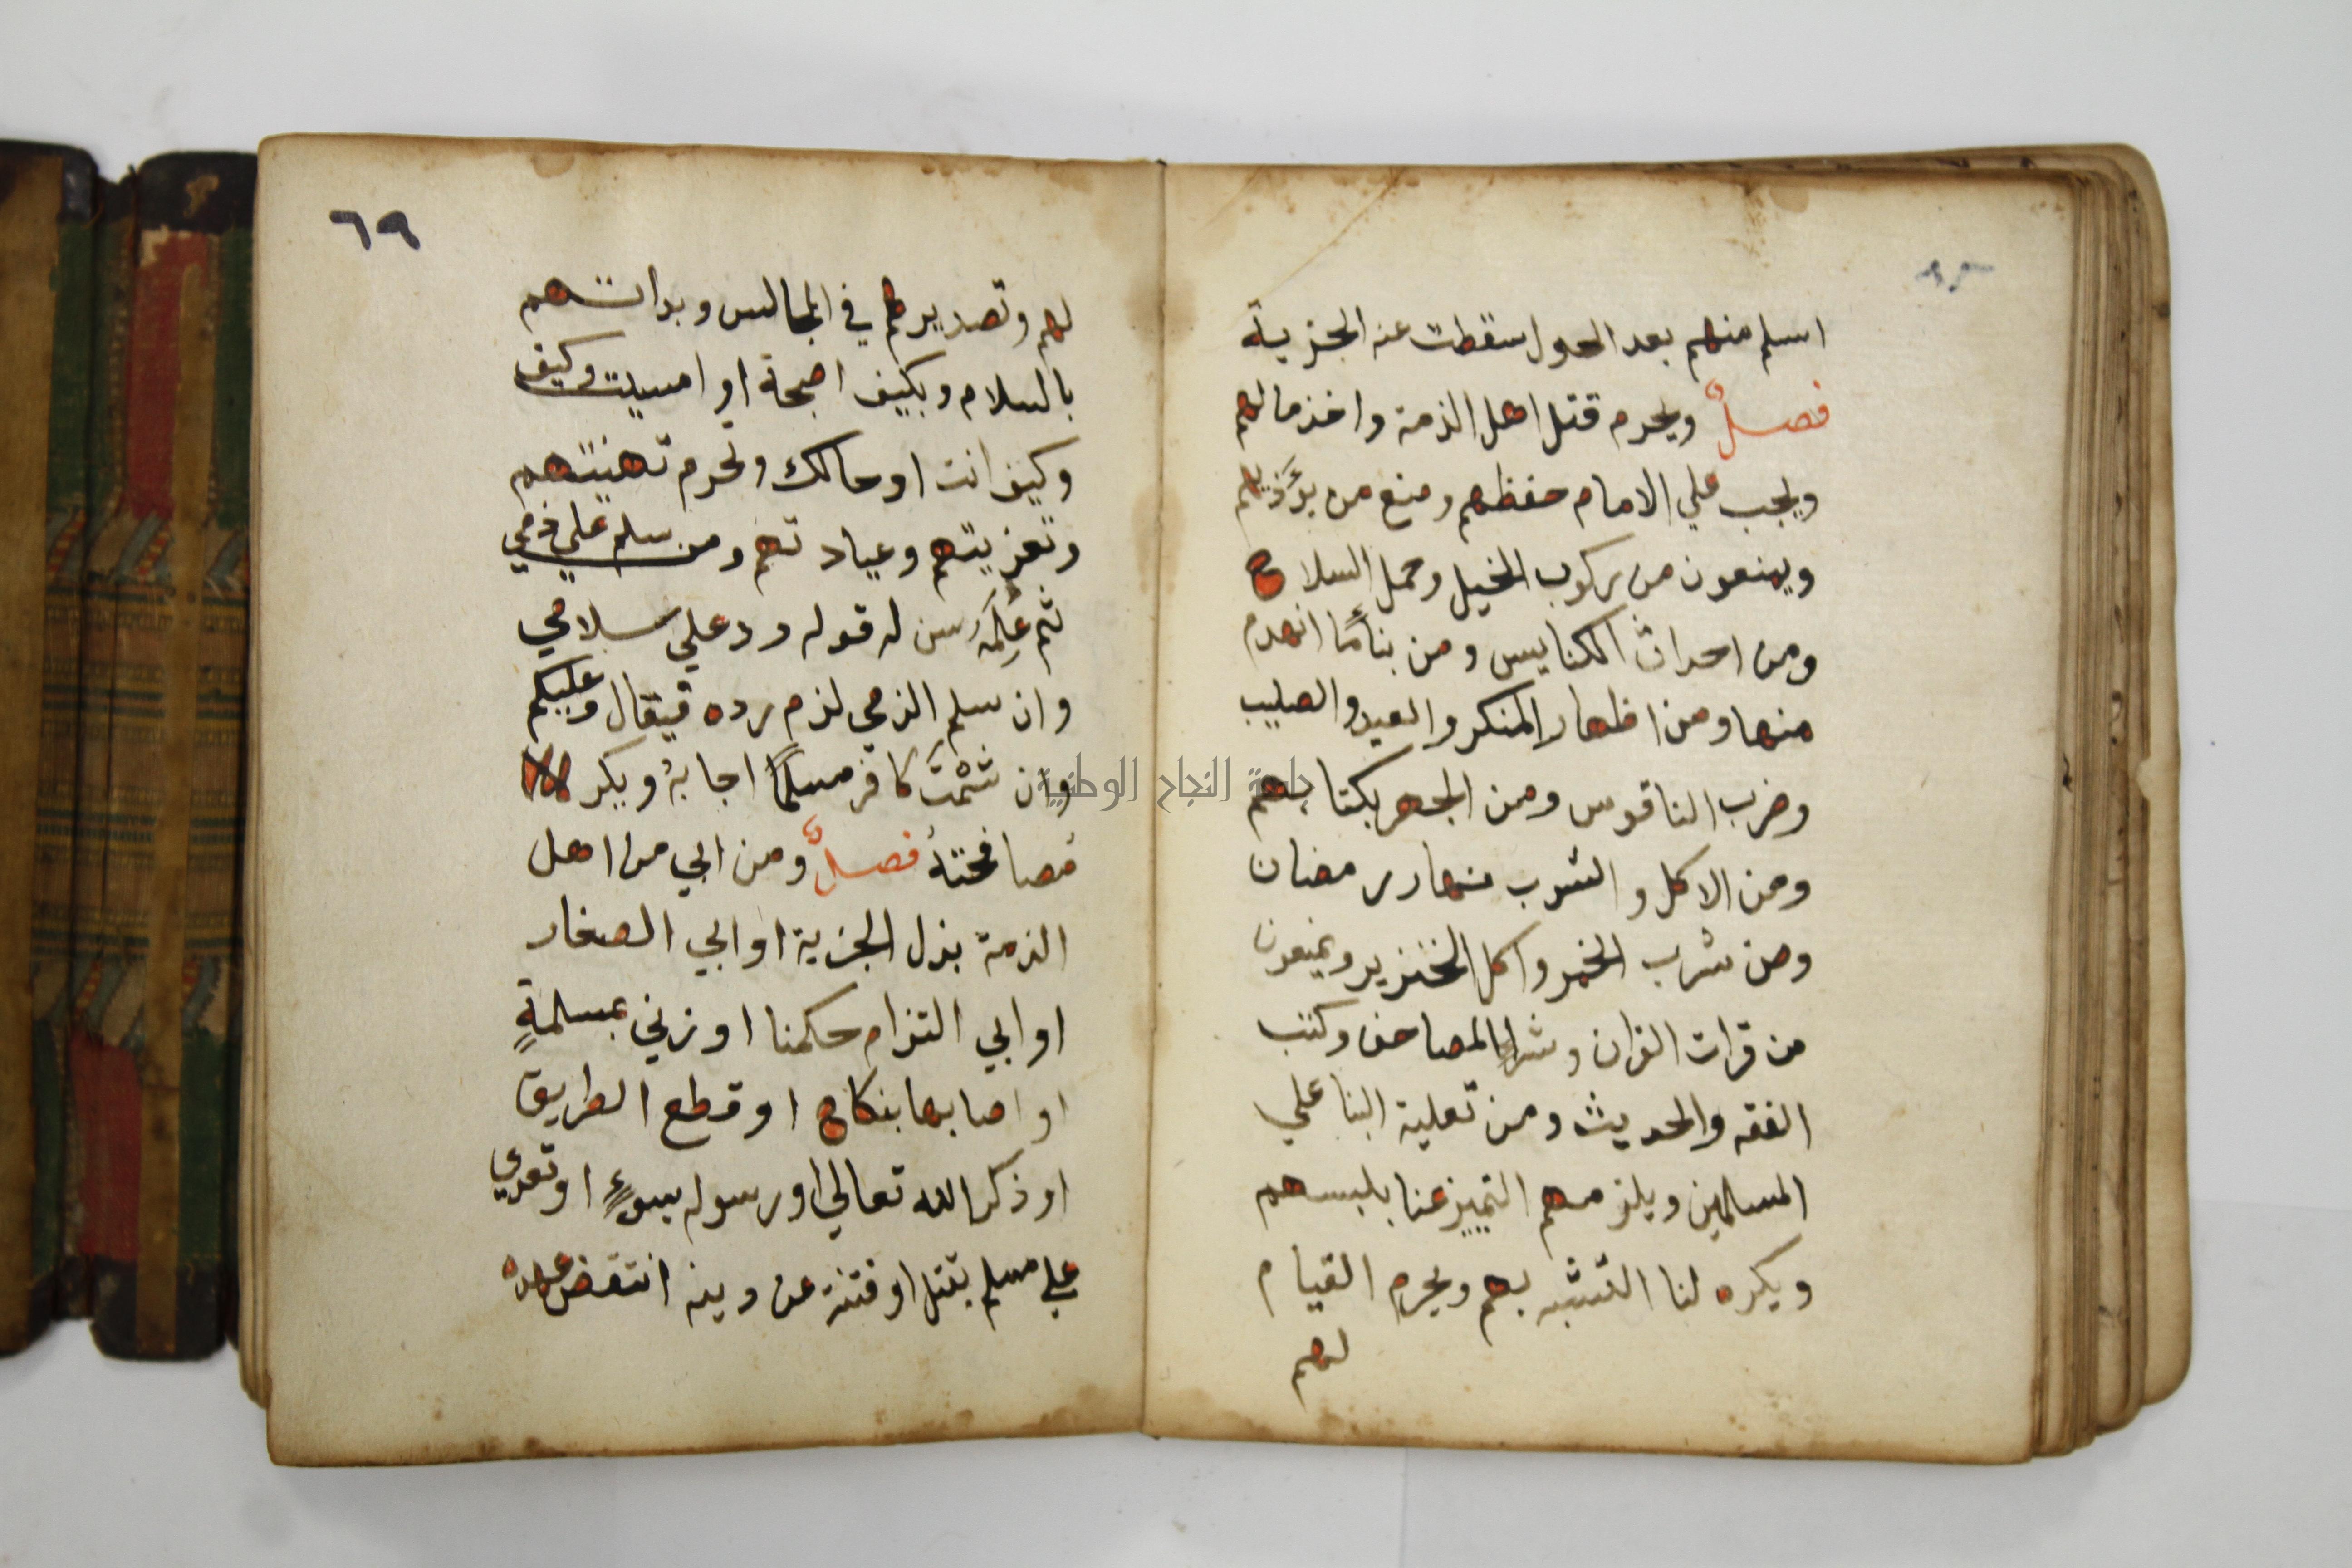 اسلم منهم بعد الحول سقطت عنه الجزية
فصلٌ ويحرم قتل اهل الذمة واخذ مالهم
ويجب علي الامام حفظهم ومنع من يؤذيهم
ويمنعون من ركوب الخيل وحمل السلاح
ومن احداث الكنايس ومن بنا ما انهدم
منها ومن اظهار المنكر والعيد والصليب
وضرب الناقوس ومن الجهر بكتابهم
ومن الاكل والشرب نهار رمضان
ومن شرب الخمر واكل الخنزير ويمنعون
من قرات القران وشرا المصاحف وكتب
الفقه والحديث ومن تعلية البنا علي
المسلمين ويلزمهم التمييز عنا بلبسهم
ويكره لنا التشبه بهم ويحرم القيام
لهم
٦٩
لهم وتصديرهم في المجالس وبداتهم
بالسلام وبكيف اصبحة او امسيت وكيف
وكيف انت او حالك وتحرم تهنيتهم
وتعزيتهم وعيادتهم ومن سلم علي ذمي
ثم عِلمَهُ سن له قوله رد علي سلامي
وان سلم الذمي لزم رده فيقال وعليكم
وان شمَّتَ كافر مسلمًا اجابهُ ويكره
مُصافحتهُ فصلٌ ومن ابي من اهل
الذمة بذل الجزية او ابي الصغار
او ابي التزام حكمنا او زني بمسلمةٍ
او اصابها بنكاح او قطع الطريق
او ذكر الله تعالي او رسوله بسوءٍ او تعدي
علي مسلم بقتل او فتنة عن دينه انتقض عهده
جامعة النجاح الوطنية